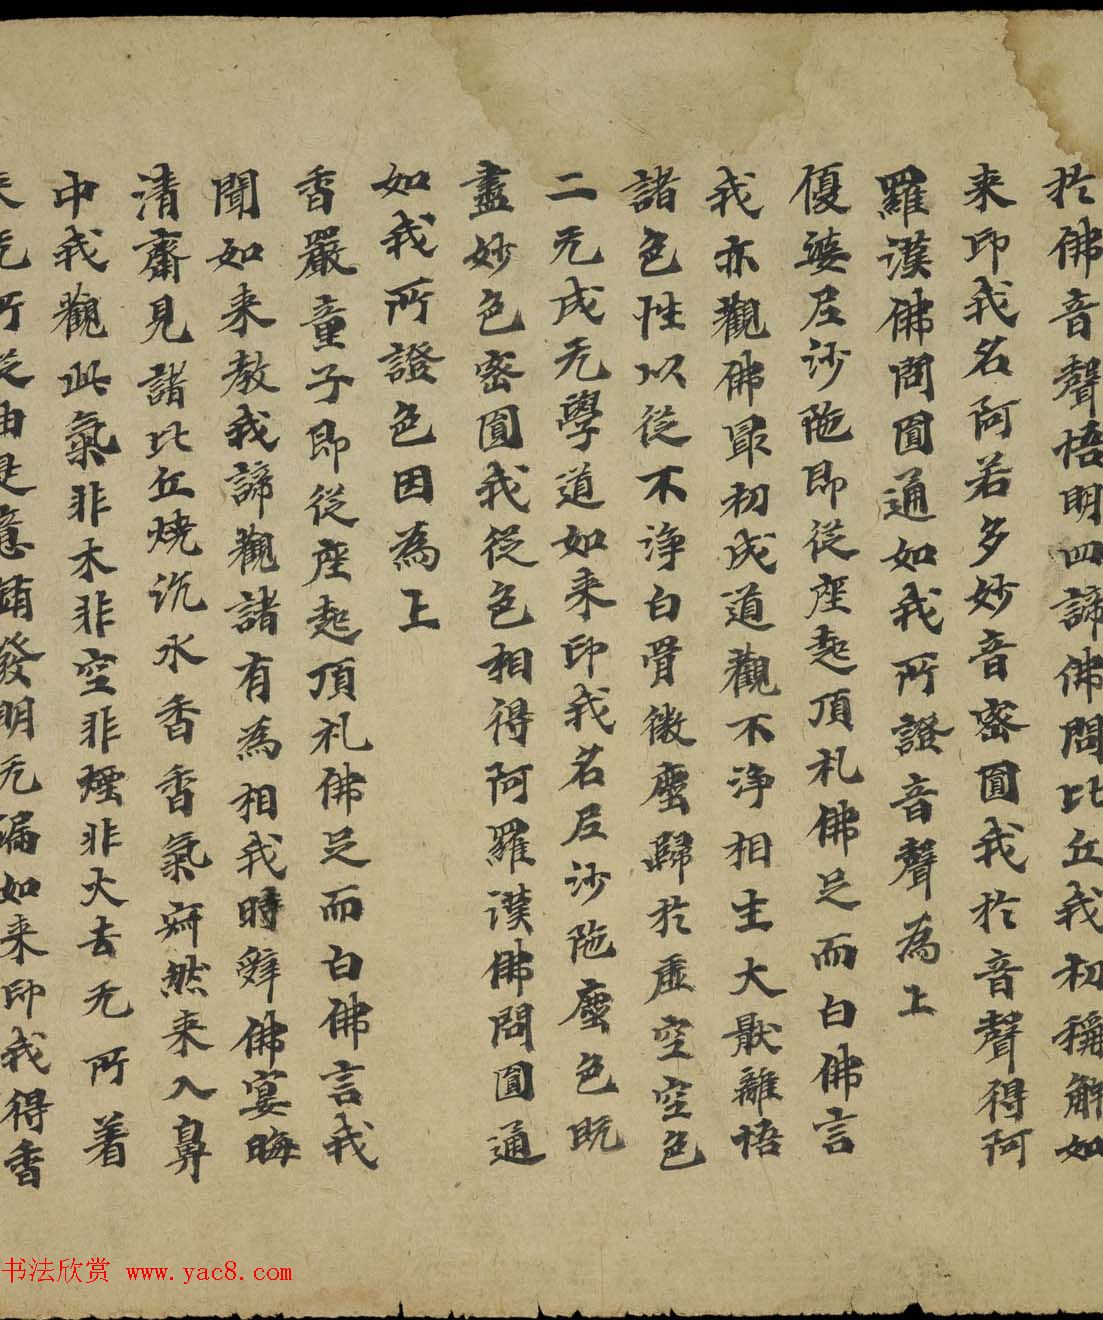 於佛音聲悟明四諦佛問比丘我初稱解如
来印我名阿若多妙音密圓我於音聲得阿
羅漢佛問圓通如我所證音聲為上
優婆尼沙陁即從座起頂礼佛足而白佛言
我亦觀佛最初成道觀不淨相生大猒離悟
諸色性以從不淨白骨微塵歸於虛空空色
二无成无學道如来印我名尼沙陁塵色既
盡妙色密圓我從色相得阿羅漢佛問圓通
如我所證色因為上
香嚴童子即從座起頂礼佛足而白佛言我
聞如来教我諦觀諸有為相我時辭佛宴晦
清齋見諸比丘燒沉水香香氣寂然来入鼻
中我觀此氣非木非空非煙非火去无所着
来无所從由是意銷發明无漏如来印我得香
书法欣赏 www.yac8.com